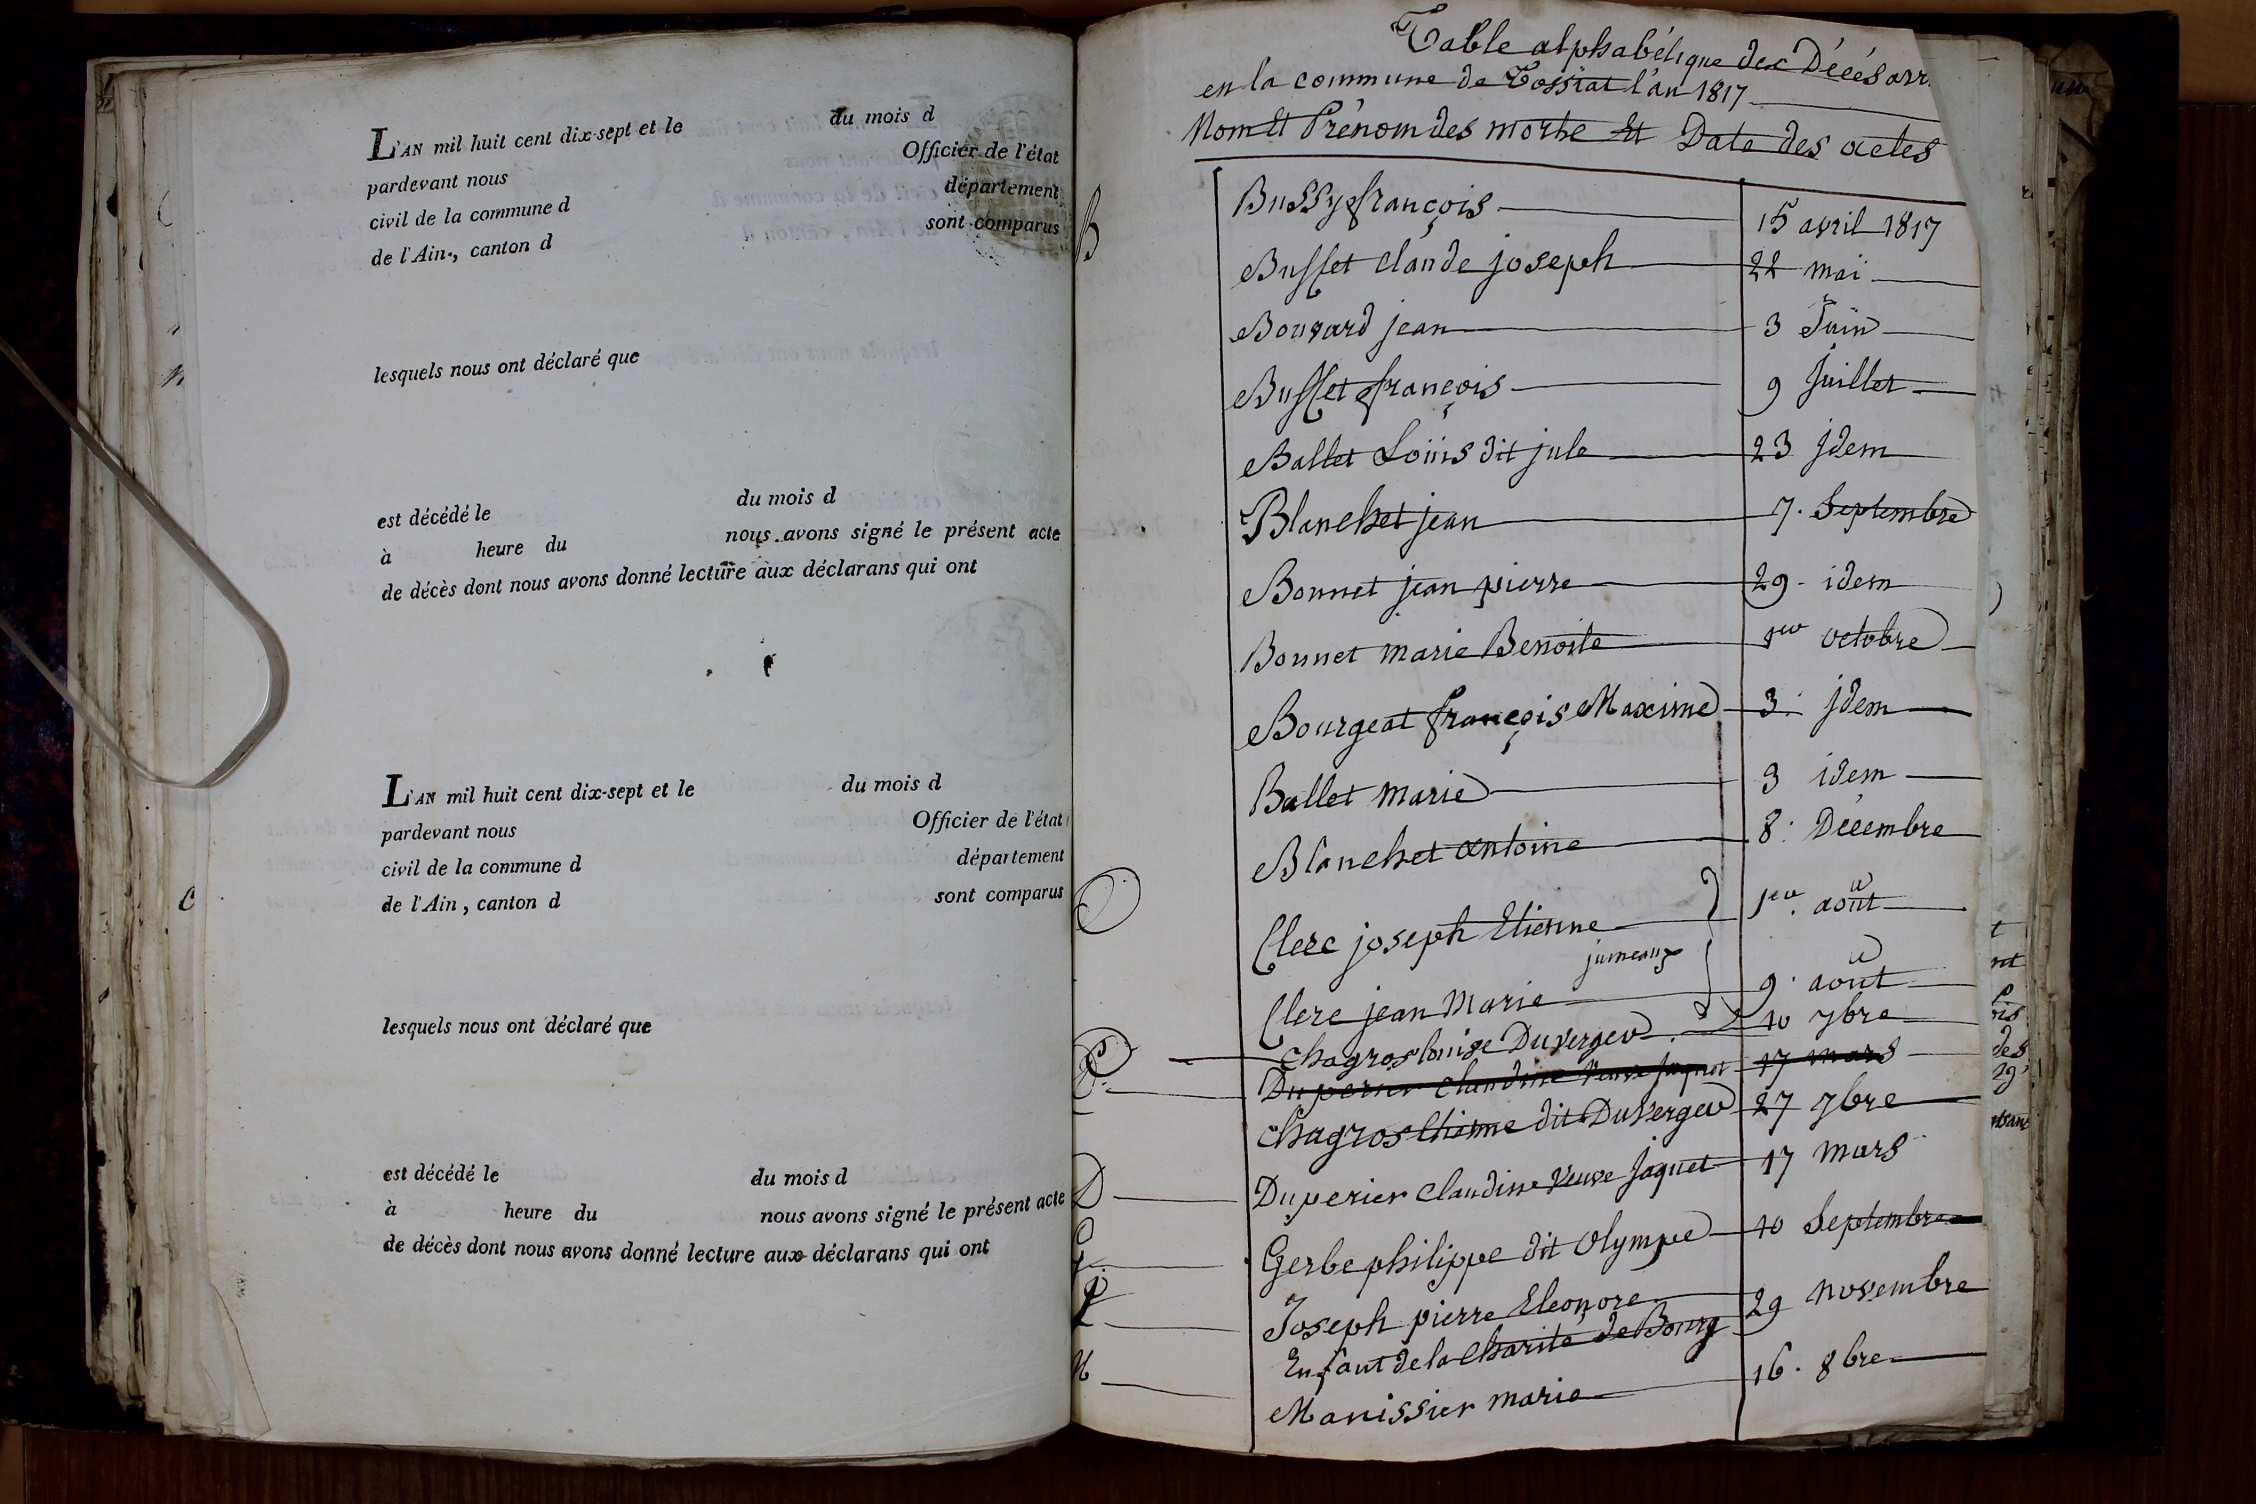 L'AN mil huit cent dix-sept et le du mois d
pardevant nous Officier de l'état
civil de la commune d département
de l'Ain, canton d sont comparus
lesquels nous ont déclaré que
est décédé le du mois d
à heure du nous avons signé le présent acte
de décès dont nous avons donné lecture aux déclarans qui ont
L'AN mil huit cent dix-sept et le du mois d
pardevant nous Officier de l'état
civil de la commune d département
de l'Ain, canton d sont comparus
lesquels nous ont déclaré que
est décédé le du mois d
à heure du nous avons signé le présent acte
de décès dont nous avons donné lecture aux déclarans qui ont
Table alphabétique des Décés arr
en la commune de Tossiat l'an 1817
Nom Et Prénom des morts Et Date des actes
B Bussy françois 15 avril 1817
Busset claude joseph 22 mai
Bouvard jean 3 Juin
Busset françois 9 Juillet
Ballet Loüis dit jule 23 jdem
Blanchet jean 7. Septembre
Bonnet jean pierre 29. idem
Bonnet marie Benoite 1er octobre
Bourgeat françois Maxime 3. jdem
Ballet marie 3 idem
Blanchet antoine 8. Décembre
C Clerc joseph Etienne 1er août
jumeaux
Clerc jean Marie 9. août
C chagros louise Duverger 10 7bre
Duperier claudine Veuve Jaquet 17 mars
chagros dit Duverger 27 7bre
D Duperier claudine Veuve Jaquet 17 mars
G Gerbe philippe dit Olympe 10 Septembre
J Joseph pierre Eleonore 29 novembre
Enfant de la Charité de Bourg
M Manissier marie 16. 8bre